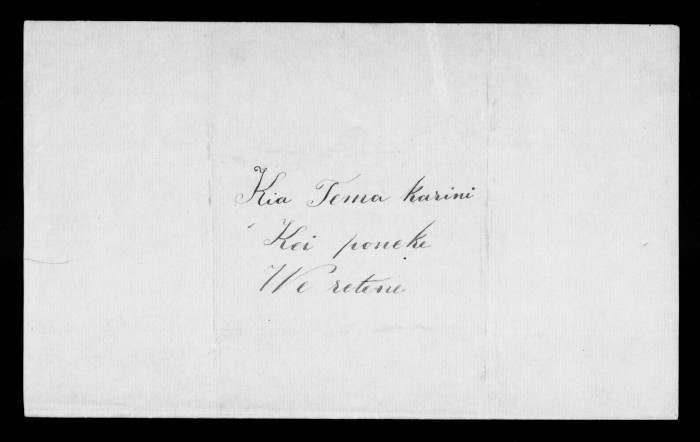 Kia Tema karini
Kei poneke
We retene